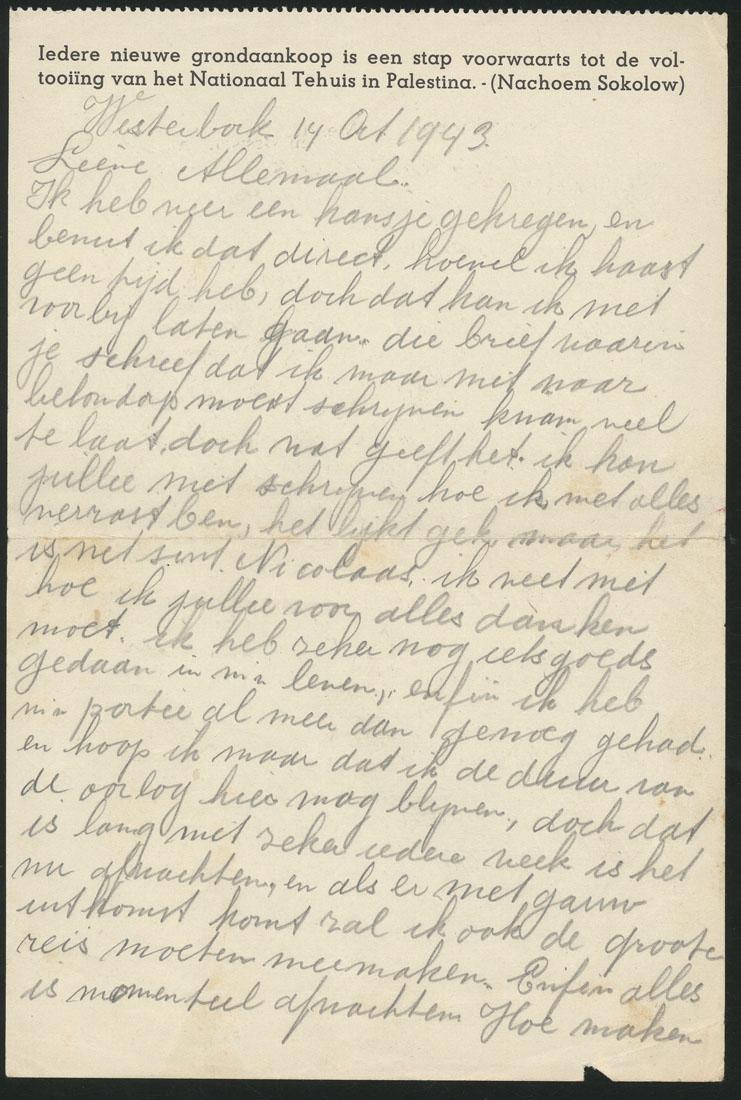 Iedere nieuwe grondaankoop is een stap voorwaarts tot de vol-
tooiïng van het Nationaal Tehuis in Palestina. - (Nachoem Sokolow)
Westerbork 14 Oct 1943.
Lieve Allemaal.
Ik heb weer een kansje gekregen, en
benut ik dat direct, hoewel ik haast
geen tijd heb, doch dat kan ik niet
voorbij laten gaan. die brief waarin
je schreef dat ik maar niet naar
moest schrijven kwam veel
te laat, doch wat geeft het. ik kan
jullie niet schrijven hoe ik met alles
verrast ben, het lijkt gek maar het
is net sint Nicolaas, ik weet niet
hoe ik jullie voor alles danken
moet. ik heb zeker nog iets goeds
gedaan in m'n leven, enfin ik heb
m'n portie al meer dan genoeg gehad.
en hoop ik maar dat ik de duur van
de oorlog hier mag blijven, doch dat
is lang niet zeker iedere week is het
nu afwachten, en als er niet gauw
uitkomst komt zal ik ook de groote
reis moeten meemaken. Enfin alles
is momenteel afwachten Hoe maken